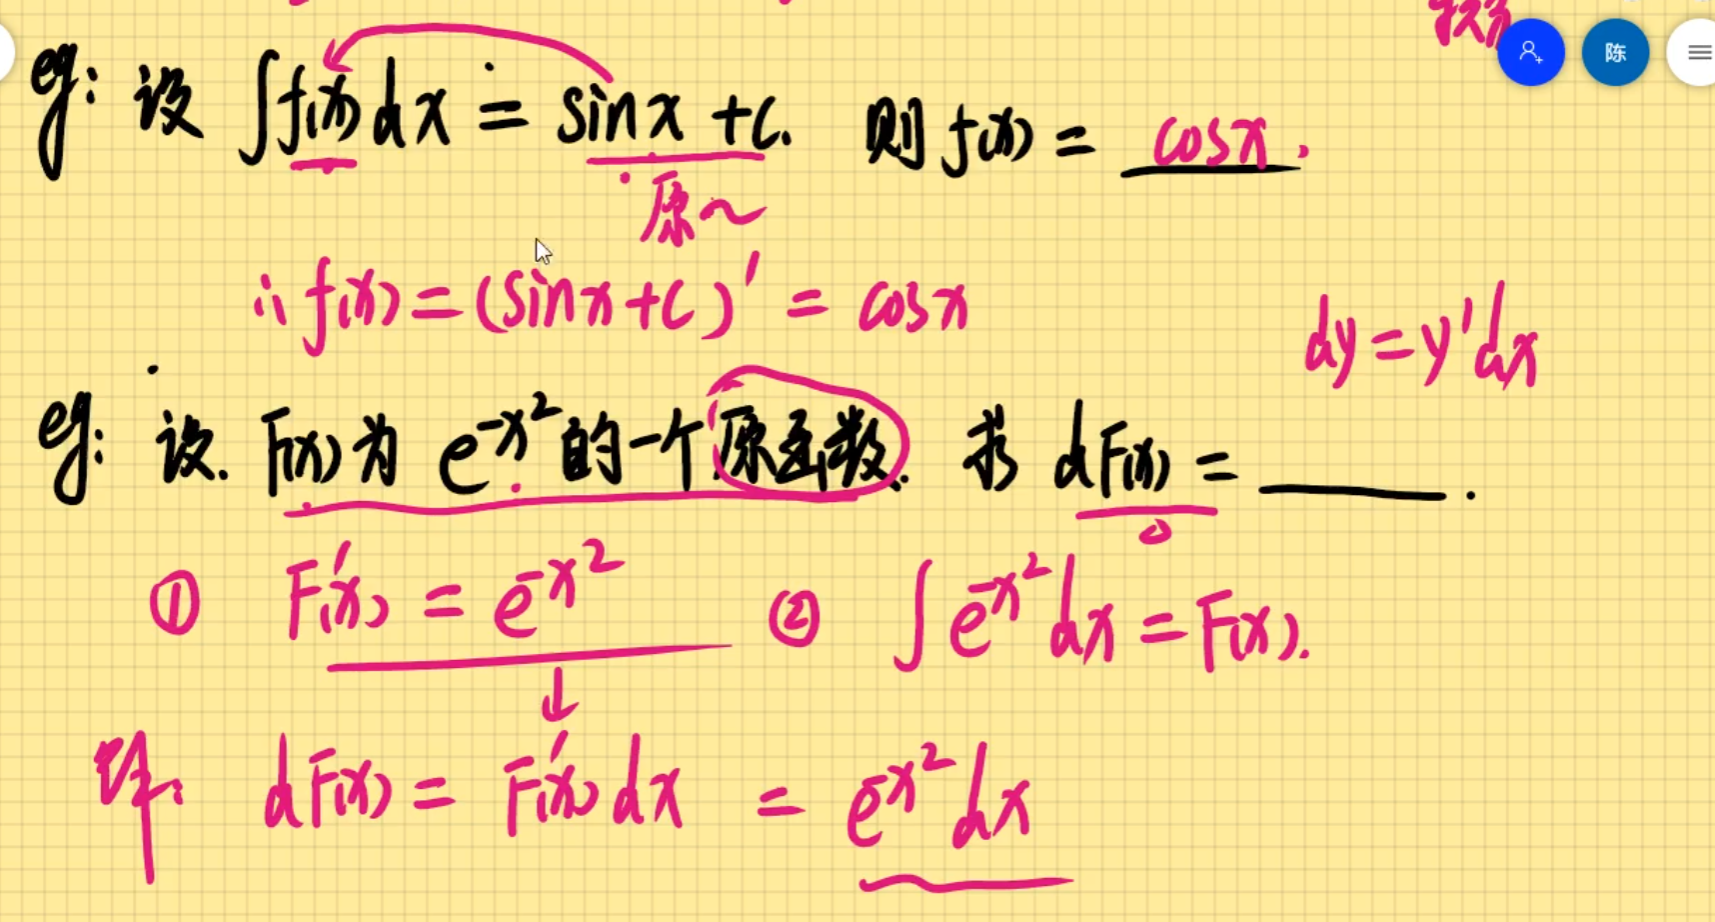 陈
eg: 设 ∫f(x)dx = sinx + C. 则 f(x) = cosx.
原~
∴ f(x) = (sinx + C)' = cosx
dy = y'dx
eg: 设. F(x) 为 e^{-x^2} 的一个原函数. 求 dF(x) = ______.
① F'(x) = e^{-x^2} ② ∫e^{-x^2}dx = F(x).
dF(x) = F'(x)dx = e^{-x^2}dx